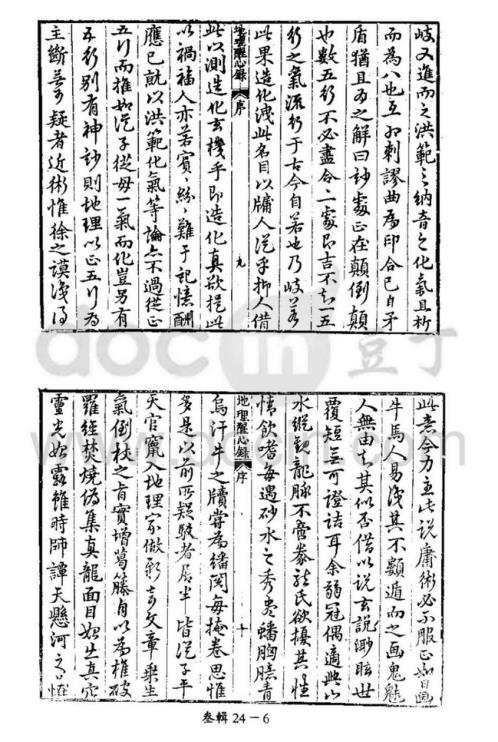 岐又進而之洪範之納音之化氣且析
而為八也互相剌謬曲為印合已自矛
盾猶且為之解曰妙處正在顛倒顛
也數五行不必盡合二家即吉不知一五
行之氣流行于古今自若也乃岐若
此果造化洩此名目以牖人從乎抑人借
地理醒心錄
序
九
此以測造化玄機乎即造化真欲從此
以禍福人亦若賓紛難于記憶酬
應已就以洪範化氣等論亦不過從正
五行而推如從子從母一氣而化豈另有
五行別有神妙則地理以正五行為
主斷無可疑者近術惟徐之謨淺得
此意今力主此說庸術必不服正如日畫
牛馬人易淺其不類遁而之畫鬼魅
人無由知其似否借以說玄說渺眩世
覆短無可證詰耳余弱冠偶適此以
水縱觀龍脉不啻豢龍氏欲擾其性
情飲嗜每遇砂水之秀患蟠胸臆青
地理醒心錄
序
十
烏汗牛之牘嘗為繙閱每掩卷思惟
多是以前所疑駁者居半皆從子平
天官竄入地理家做彩文章乘生
氣倒杖之旨實增葛藤自以為推破
羅經焚燒偽集真龍面目如出真穴
靈光如露雖時師譚天懸河之口
叁輯 24－6
www.docin.com
豆丁